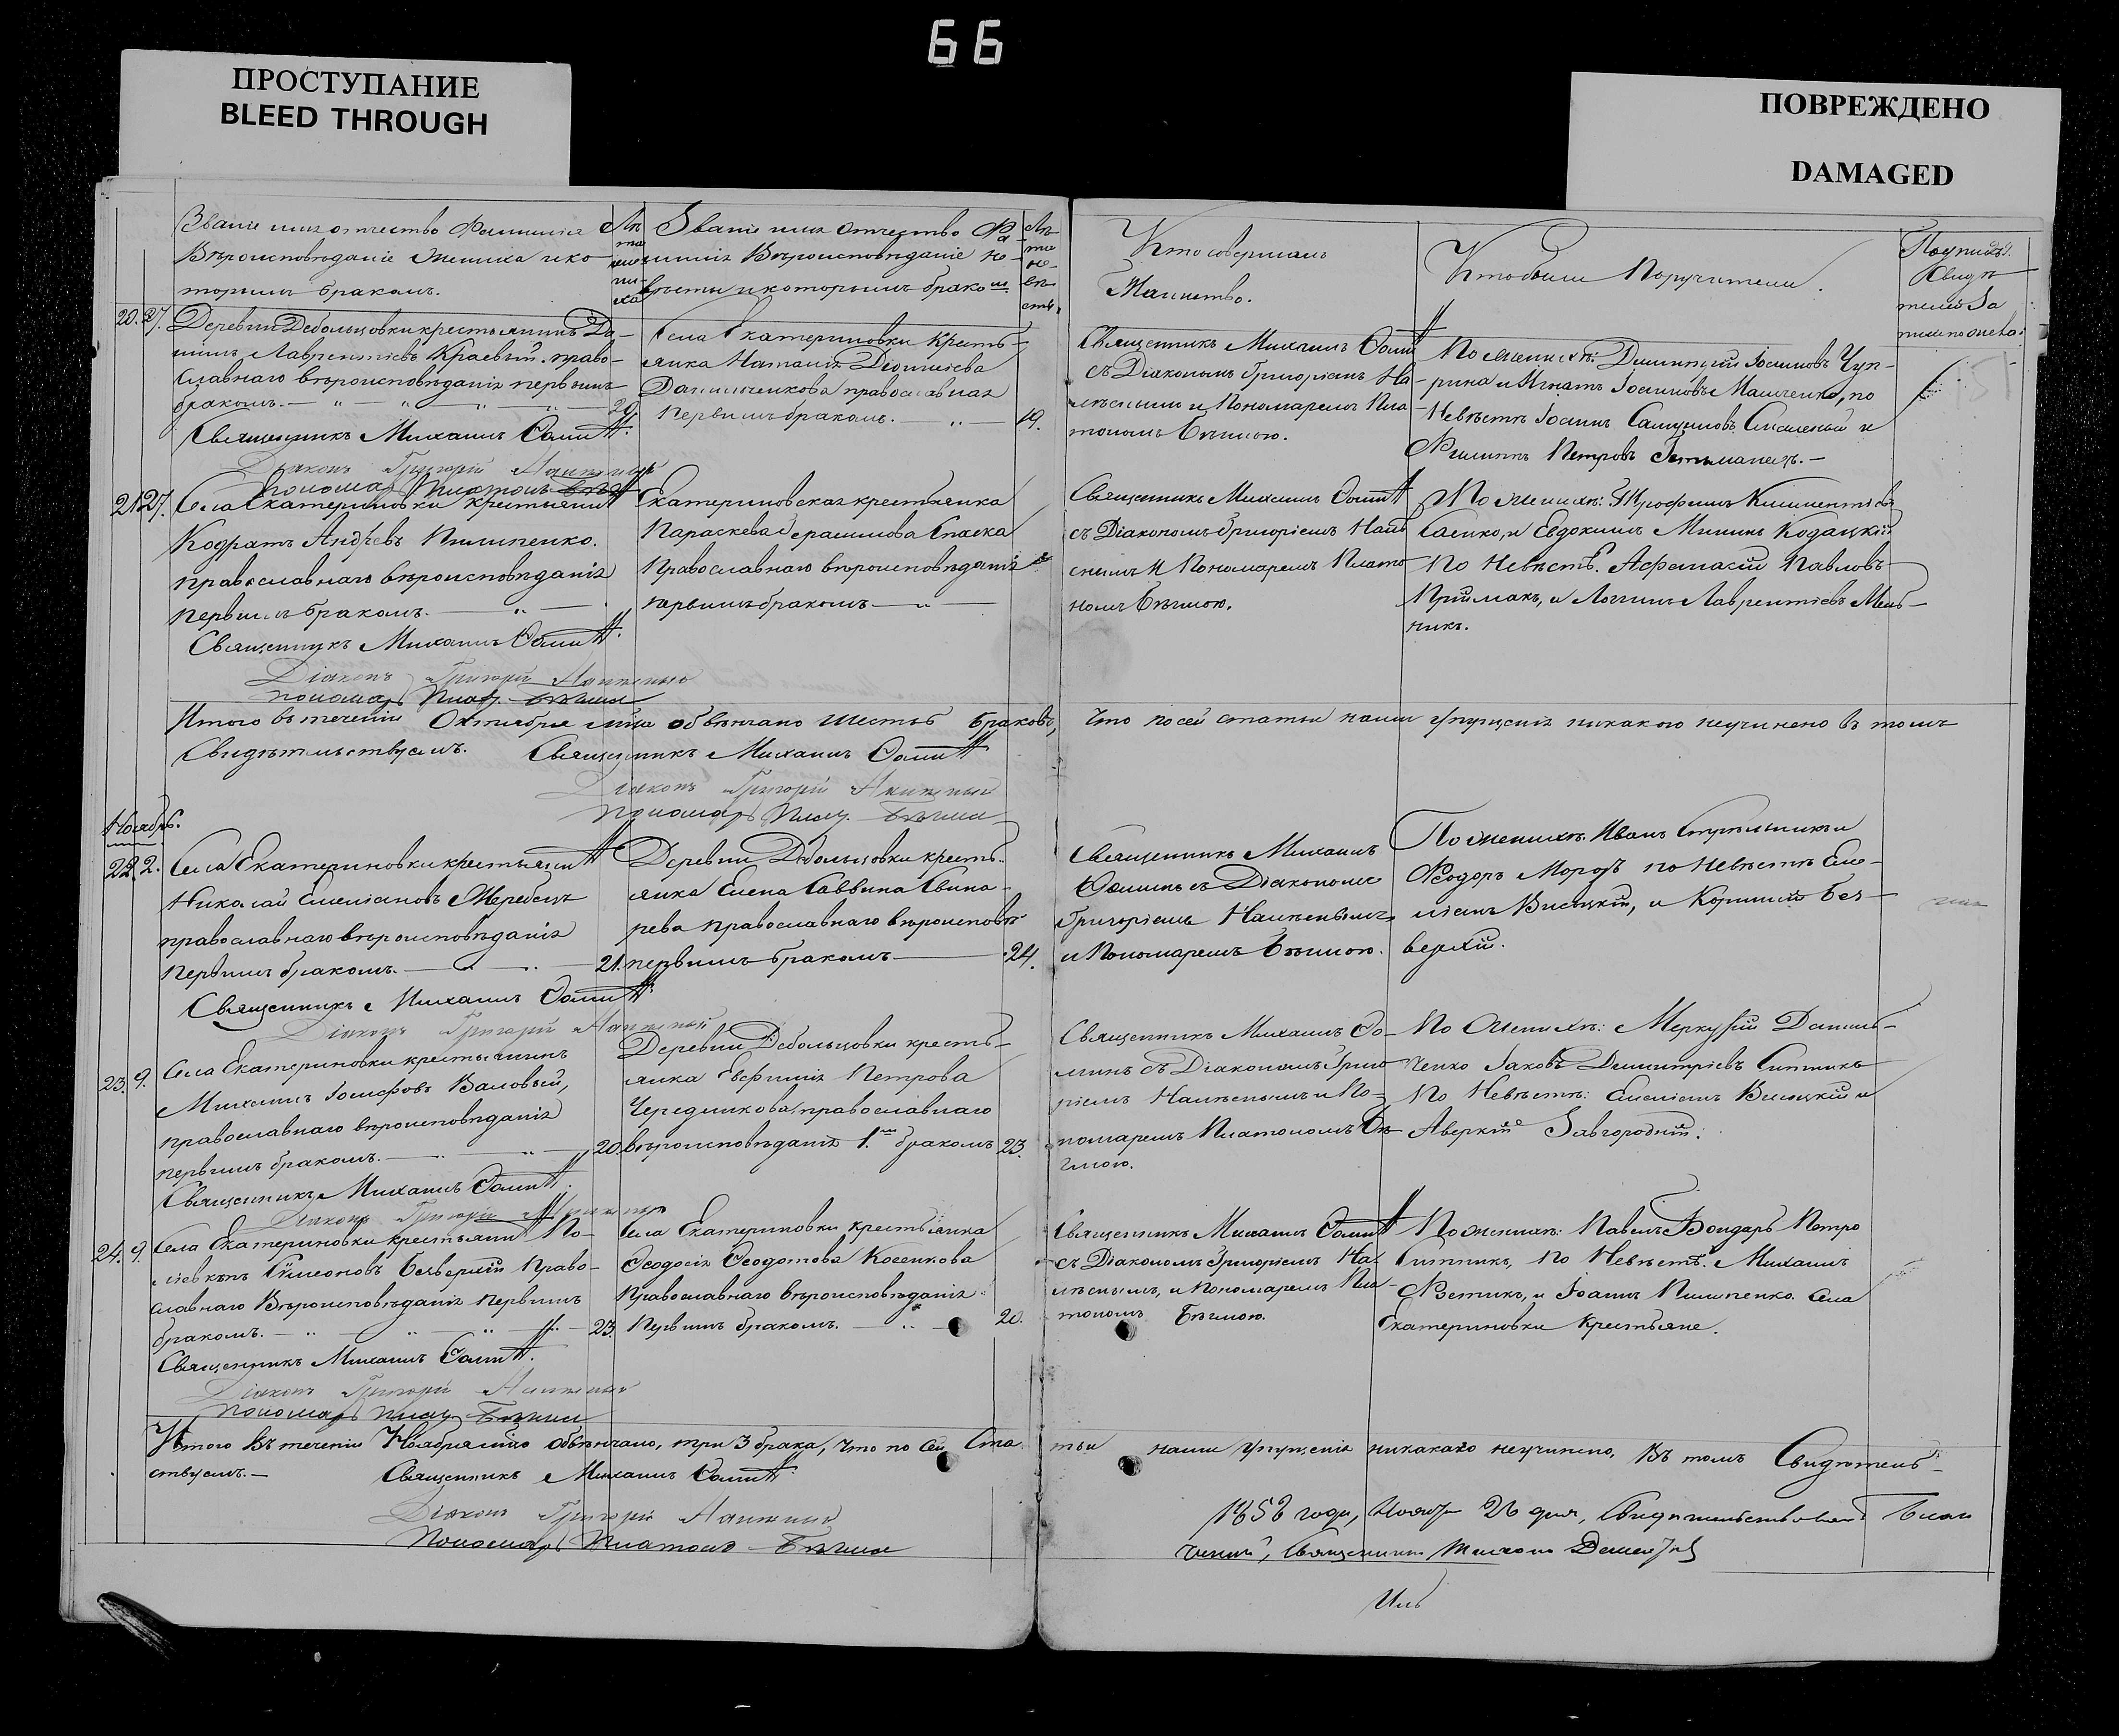 66
ПРОСТУПАНИЕ
BLEED THROUGH
ПОВРЕЖДЕНО
DAMAGED
Званіе имя отчество Фамилія
Вѣроисповѣданіе жениха и ко-
торымъ бракомъ.
Лѣ
та
же
ни
ха
Званіе имя Отчество Фа-
милія Вѣроисповѣданіе не-
вѣсты и которымъ бракомъ
Лѣ
та
не-
вѣ
сты.
Кто совершалъ
Таинство.
Кто были Поручители.
Подпись
Свидѣ
телей За
писи по
20. 27. Деревни Дебольцовки крестьянинъ Да-
ніилъ Лаврентіевъ Краевый право-
славнаго вѣроисповѣданія первымъ
бракомъ. 20.
Священникъ Михаилъ
Діаконъ Григорій
пономарь Платонъ
Села Екатериновки кресть-
янка Наталія Діонисіева
Данильченкова православная
первымъ бракомъ. 19.
Священникъ Михаилъ
съ Діакономъ Григоріемъ На-
лѣснымъ и Пономаремъ Пла-
тономъ Бѣгмою.
По женихѣ: Димитрій Іосифовъ Чуп-
рина и Игнатъ Іосифовъ Мальченко, по
Невѣстѣ Іоаннъ Самуиловъ и
Филиппъ Петровъ Гетьманецъ.
21. 27. Села Екатериновки крестьянинъ
Кодратъ Андреевъ Пилипенко.
православнаго вѣроисповѣданія
первымъ бракомъ.
Священникъ Михаилъ
Діаконъ Григорій
пономарь Плат. Бѣгма
Екатериновская крестьянка
Параскева Герасимова Спаска
Православнаго вѣроисповѣданія
первымъ бракомъ
Священникъ Михаилъ
съ Діакономъ Григоріемъ Налѣ
снымъ и Пономаремъ Плато
номъ Бѣгмою.
По женихѣ: Трофимъ Климентіевъ
Саенко, и Евдокимъ Мининъ Кодацкій
По Невѣстѣ: Афанасій Павловъ
Приймакъ, и Логгинъ Лаврентіевъ Мель-
никъ.
Итого въ теченіи Октября мѣца обвѣнчано шесть браковъ, Что по сей статьи нами упущенія никакого неучинено въ томъ
Свидѣтельствуемъ. Священникъ Михаилъ
Діаконъ Григорій
пономарь Плат. Бѣгма
Ноябрь.
22. 2. Села Екатериновки крестьянинъ
Николай Емеліановъ Жеребецъ
православнаго вѣроисповѣданія
первымъ бракомъ. 21.
Священникъ Михаилъ
Діаконъ Григорій
Деревни Дебольцовки кресть-
янка Елена Саввина Свина-
рева православнаго вѣроисповѣ
первымъ бракомъ 24.
Священникъ Михаилъ
съ Діакономъ
Григоріемъ Налѣснымъ
и Пономаремъ Бѣгмою.
По женихѣ Иванъ Стрѣльникъ и
Ѳеодоръ Морозъ по Невѣстѣ Еме-
ліанъ Высоцкій, и Корнилій Без-
верхій.
23. 9. Села Екатериновки крестьянинъ
Михаилъ Іосифовъ Валовый,
православнаго вѣроисповѣданія
первымъ бракомъ. 20.
Священникъ Михаилъ
Діаконъ Григорій
Деревни Дебольцовки кресть-
янка Евфимія Петрова
Чередникова, православнаго
вѣроисповѣданія 1. бракомъ 23.
Священникъ Михаилъ Со-
минъ съ Діакономъ Григо
ріемъ Налѣснымъ и По-
номаремъ Платономъ Бѣ
гмою.
По Женихѣ: Меркурій Даниль-
ченко Іаковъ Димитріевъ Ситникъ
По Невѣстѣ: Емеліанъ Высоцкій и
Аверкій Завгородній.
24. 9. Села Екатериновки крестьянинъ По-
Симеоновъ Безверхій Право-
славнаго Вѣроисповѣданія первымъ
бракомъ. 23.
Священникъ Михаилъ
Діаконъ Григорій
пономарь Плат. Бѣгма
Села Екатериновки крестьянка
Ѳеодосія Ѳеодотова Косенкова
Православнаго вѣроисповѣданія
Первымъ бракомъ. 20.
Священникъ Михаилъ
съ Діакономъ Григоріемъ На-
лѣснымъ, и Пономаремъ Пла-
тономъ Бѣгмою.
По женихѣ: Павелъ Бондарь Петро
Ситникъ, по Невѣстѣ: Михаилъ
и Іоаннъ Пилипенко Села
Екатериновки Крестьяне.
Итого Въ теченіи Ноября мѣца обвѣнчано, три 3 брака, что по сей Ста тьи нами упущенія никакаго неучинено, Въ томъ Свидѣтель-
ствуемъ. Священникъ Михаилъ
Діаконъ Григорій
Пономарь Платонъ Бѣгма
года, Ноября 26 дня, Свидетельствовалъ Благо
чинный, Священникъ